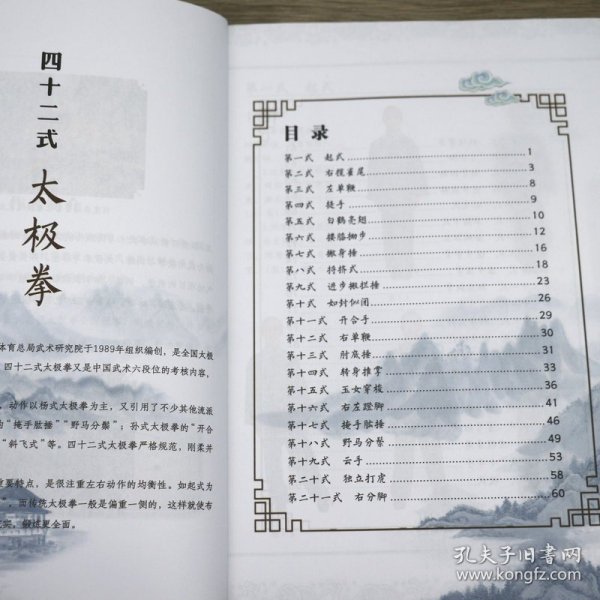 四十二式
太极拳
体育总局武术研究院于1989年组织编创，是全国太极
四十二式太极拳又是中国武术六段位的考核内容，
动作以杨式太极拳为主，又引用了不少其他流派
“掩手肱捶”“野马分鬃”；孙式太极拳的“开合
“斜飞式”等。四十二式太极拳严格规范，刚柔并
重要特点，是很注重左右动作的均衡性。如起式为
，而传统太极拳一般是偏重一侧的，这样就使布
完实，锻炼更全面。
目录
第一式 起式 1
第二式 右揽雀尾 3
第三式 左单鞭 8
第四式 提手 9
第五式 白鹤亮翅 10
第六式 搂膝拗步 12
第七式 撇身捶 16
第八式 捋挤式 18
第九式 进步搬拦捶 23
第十式 如封似闭 26
第十一式 开合手 29
第十二式 右单鞭 30
第十三式 肘底捶 31
第十四式 转身推掌 33
第十五式 玉女穿梭 36
第十六式 右左蹬脚 41
第十七式 掩手肱捶 46
第十八式 野马分鬃 49
第十九式 云手 53
第二十式 独立打虎 58
第二十一式 右分脚 60
孔夫子旧书网
www.kongfz.com